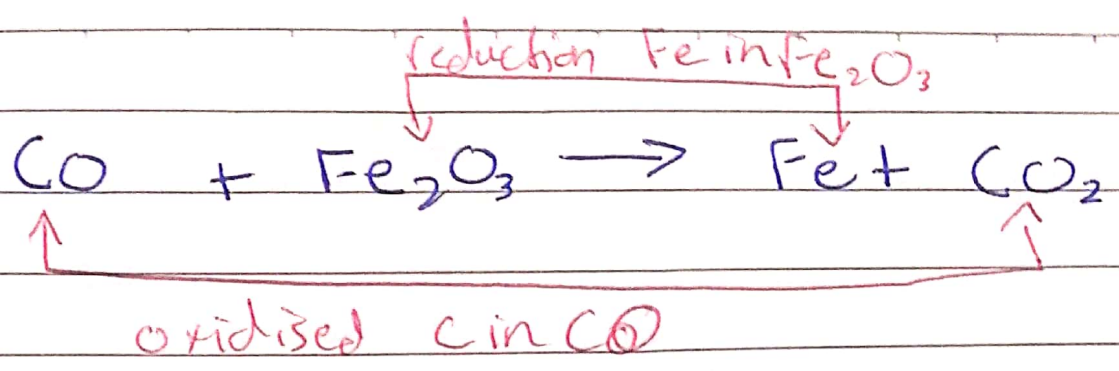 reduction Fe in Fe₂O₃
CO + Fe₂O₃ → Fe + CO₂
oxidised C in CO